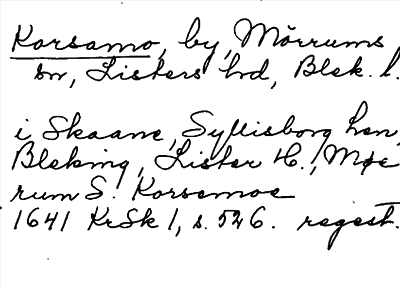 Korsamo, by, Mörrums
sn, Listers hd, Blek. l.
i Skaane, Syllisborg len,
Bleking, Lister H., Møe
rum S. Korsemoe
1641 KrSk 1, s. 526. regest.